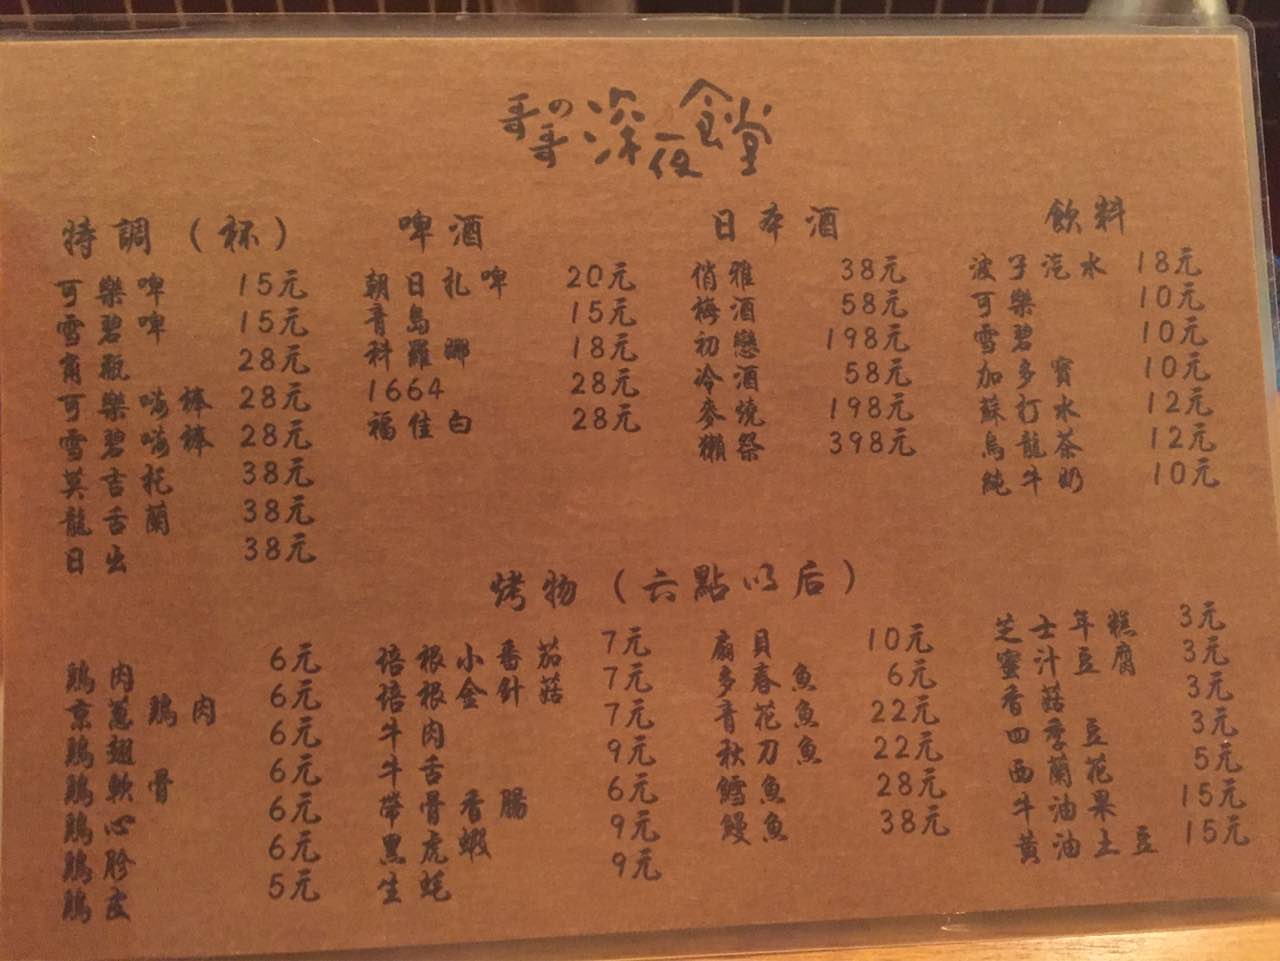 哥の哥 深夜食堂
特調（杯）
可樂啤 15元
雪碧啤 15元
角瓶 28元
可樂嗨棒 28元
雪碧嗨棒 28元
莫吉托 38元
龍舌蘭 38元
日出 38元
啤酒
朝日扎啤 20元
青島 15元
科羅娜 18元
1664 28元
福佳白 28元
日本酒
俏雅 38元
梅酒 58元
初戀 198元
冷酒 58元
麥燒 198元
獺祭 398元
飲料
波子汽水 18元
可樂 10元
雪碧 10元
加多寶 10元
蘇打水 12元
烏龍茶 12元
純牛奶 10元
烤物（六點以后）
鷄肉 6元
京蔥鷄肉 6元
鷄翅 6元
鷄軟骨 6元
鷄心 6元
鷄胗 6元
鷄皮 5元
培根小番茄 7元
培根金針菇 7元
牛肉 7元
牛舌 9元
帶骨香腸 6元
黑虎蝦 9元
生蚝 9元
扇貝 10元
多春魚 6元
青花魚 22元
秋刀魚 22元
鱈魚 28元
鰻魚 38元
芝士年糕 3元
蜜汁豆腐 3元
香菇 3元
四季豆 3元
西蘭花 5元
牛油果 15元
黃油土豆 15元